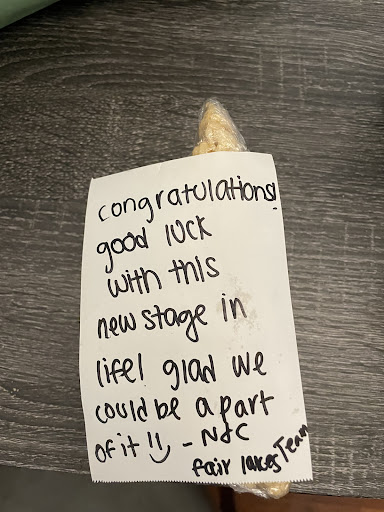 congratulations!
good luck
with this
new stage in
life! glad we
could be a part
of it!! - N&C
fair lakes Team